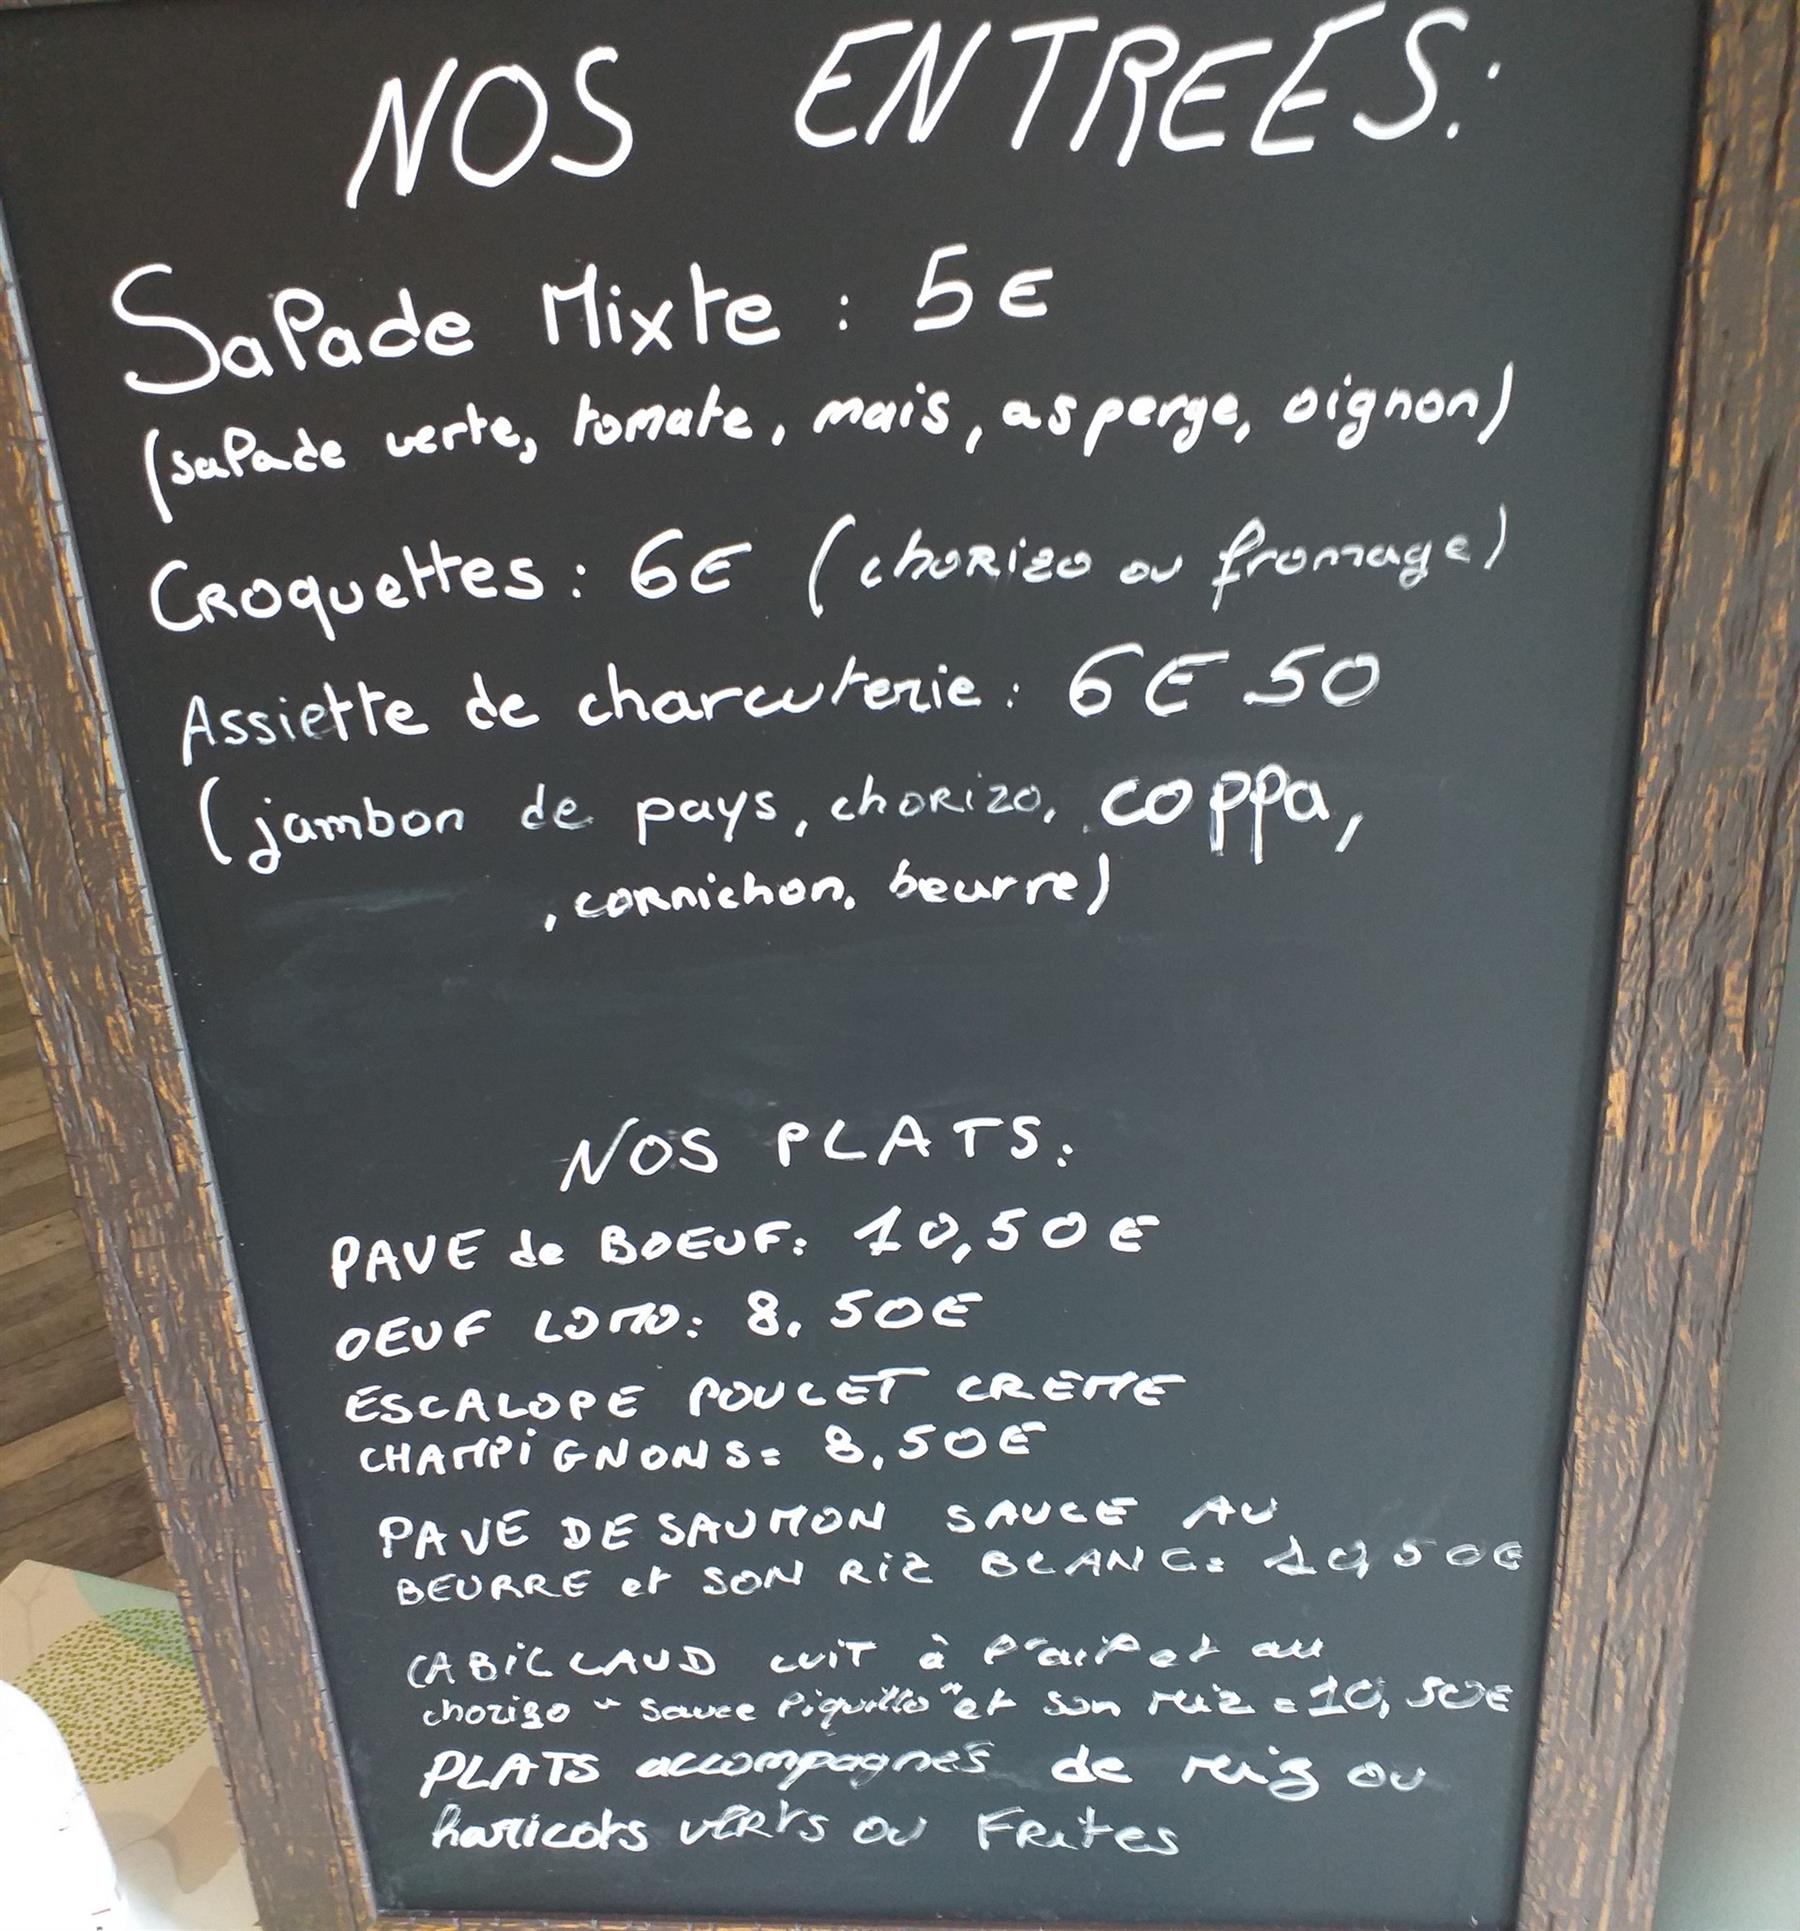 NOS ENTREES:
Salade Mixte : 5€
(salade verte, tomate, mais, asperge, oignon)
Croquettes : 6€ (chorizo ou fromage)
Assiette de charcuterie : 6€50
(jambon de pays, chorizo, coppa,
, cornichon, beurre)
NOS PLATS:
PAVE de BOEUF: 10,50€
OEUF LOMO: 8,50€
ESCALOPE POULET CREME
CHAMPIGNONS= 8,50€
PAVE DE SAUMON SAUCE AU
BEURRE et SON RIZ BLANC= 10,50€
CABILLAUD CUIT à l'ail et au
chorizo "sauce Piquillo" et son riz = 10,50€
PLATS accompagnés de riz ou
haricots verts ou Frites